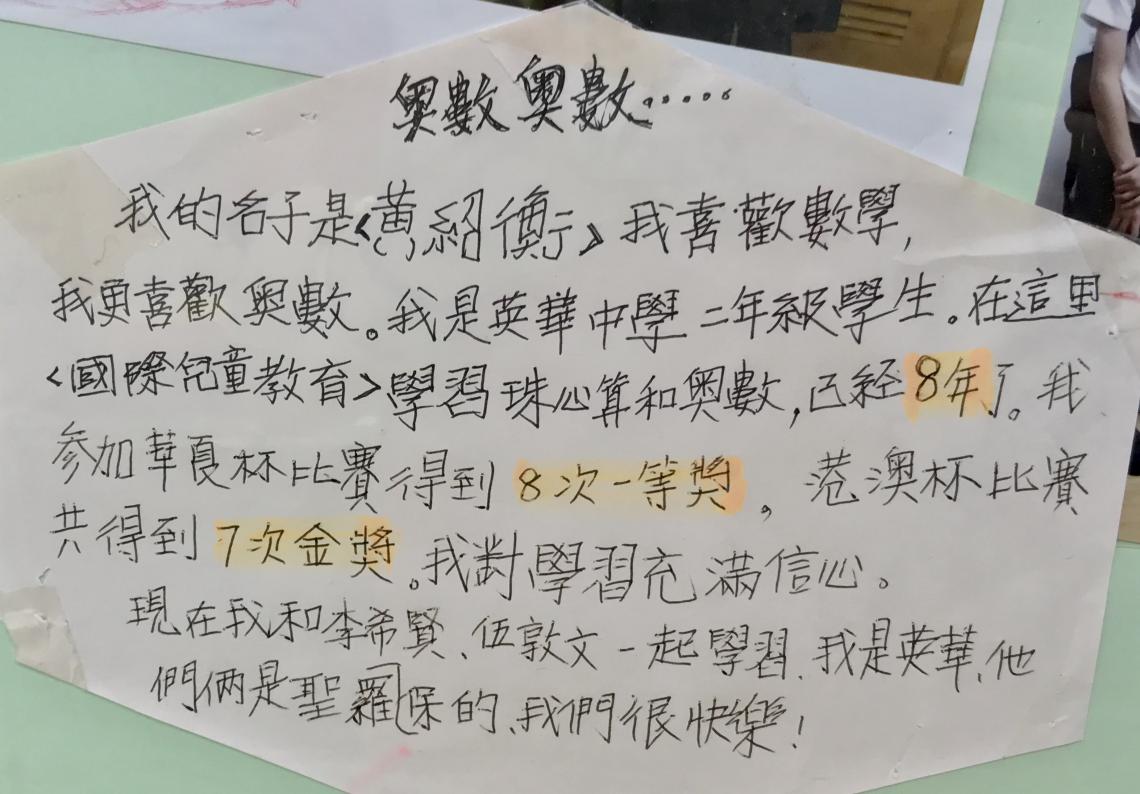 奧數奧數……
我的名子是《黃紹衡》我喜歡數學,
我更喜歡奧數。我是英華中學二年級學生。在這里
<國際兒童教育>學習珠心算和奧數,已经8年了。我
參加華夏杯比賽得到8次一等獎。港澳杯比賽
共得到7次金獎。我對學習充滿信心。
現在我和李希賢、伍敦文一起學習、我是英華、他
們倆是聖羅保的、我們很快樂!